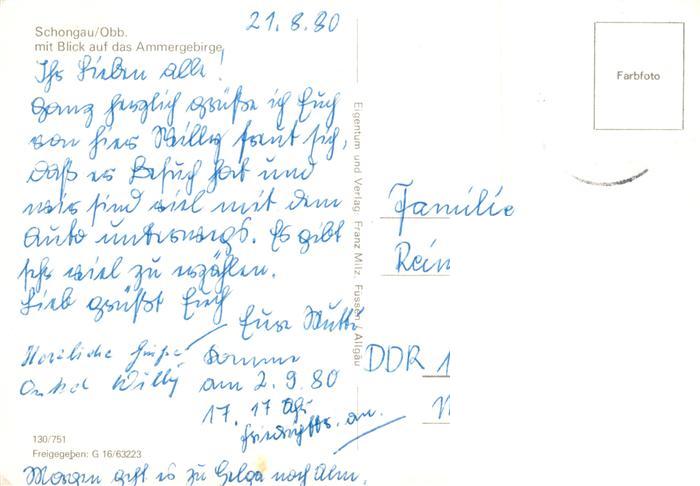 Schongau/Obb.
mit Blick auf das Ammergebirge
21.8.80
Ihr Lieben alle!
Ganz herzlich grüße ich Euch
von hier Willy freut sich,
daß er Besuch hat und
wir sind viel mit dem
Auto unterwegs. Es gibt
sehr viel zu erzählen.
Lieb grüßt Euch
Eure Mutti
Herzliche Grüße
Onkel Willy
Komme
am 2.9.80
17.17 Uhr
Friedrichstr. an.
Morgen geht es zu Helga nach Ulm.
130/751
Freigegeben: G 16/63223
Eigentum und Verlag: Franz Milz, Füssen/Allgäu
Farbfoto
Familie
Rein
DDR 1